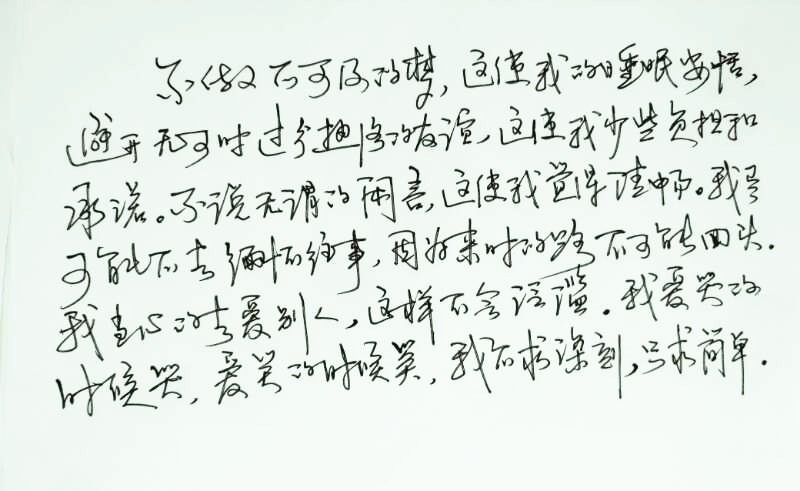 不做不可及的梦，这使我的睡眠安恬，
避开无时过分络的友谊，这使我少些负担和
承诺。不说无谓的闲言，这使我觉得清畅。我尽
可能不去缅怀往事，因为来时的路不可能回头.
我当心的去爱别人，这样不会泛滥.我爱哭的
时候哭，爱笑的时候笑，我不求深刻，只求简单.